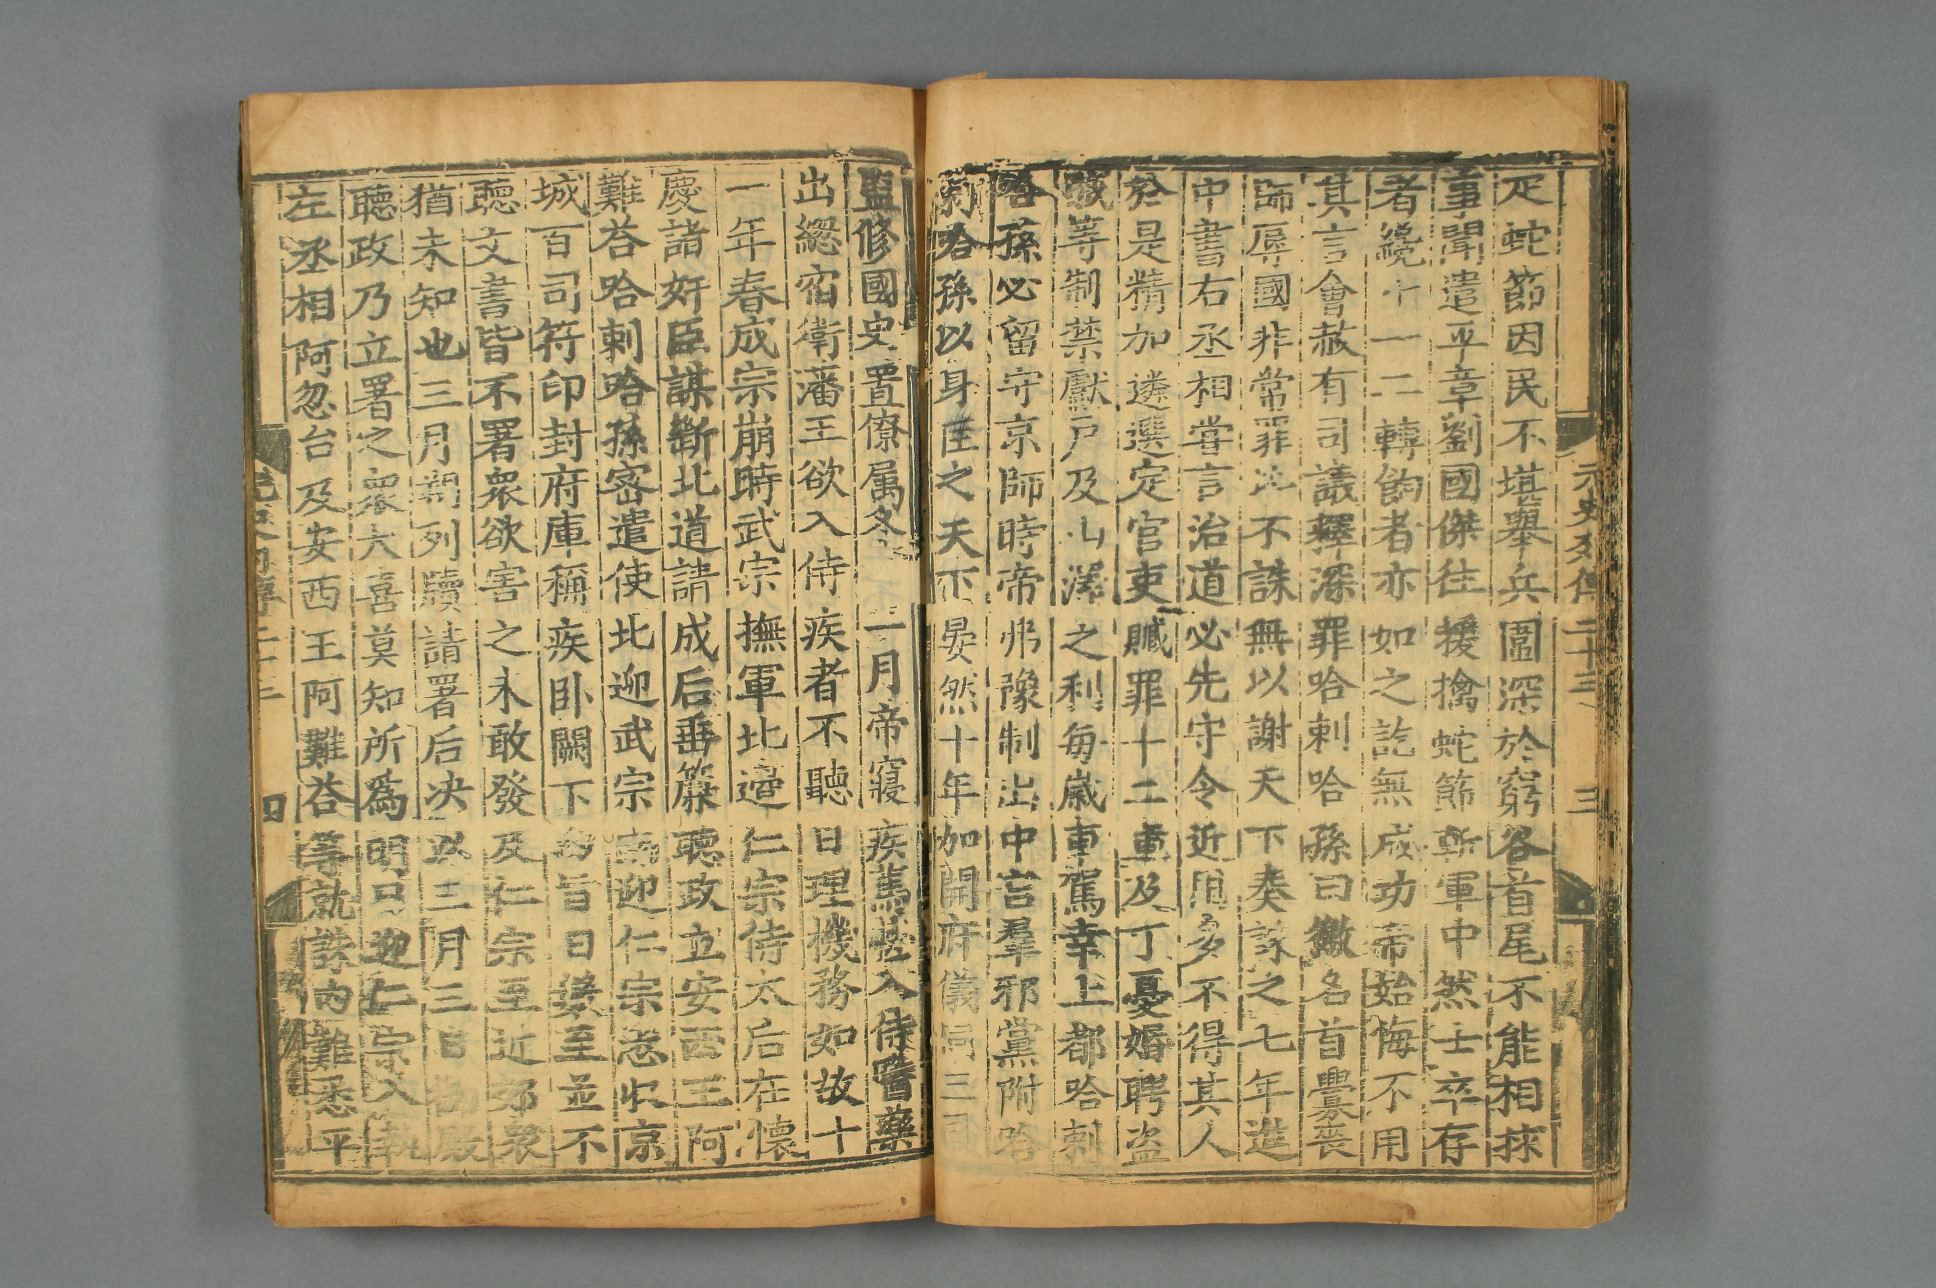 元史列傳二十三 三
足蛇節因民不堪舉兵圍深於窮谷首尾不能相捄
事聞遣平章劉國傑往援擒蛇節斬軍中然士卒存
者纔十一二轉餉者亦如之訖無成功帝始悔不用
其言會赦有司議釋深罪哈剌哈孫曰徼名首釁喪
師辱國非常罪比不誅無以謝天下奏誅之七年進
中書右丞相嘗言治道必先守令近用多不得其人
於是精加遴選定官吏贓罪十二章及丁憂婚聘盜
賊等制禁獻戶及山澤之利每歲車駕幸上都哈剌
哈孫必留守京師時帝弗豫制出中宮羣邪黨附哈
剌哈孫以身匡之天下晏然十年加開府儀同三司
監修國史置僚属冬十一月帝寢疾篤入侍醫藥
出總宿衛藩王欲入侍疾者不聽日理機務如故十
一年春成宗崩時武宗撫軍北邊仁宗侍太后在懷
慶諸奸臣謀斷北道請成后垂簾聽政立安西王阿
難荅哈剌哈孫密遣使北迎武宗南迎仁宗悉收京
城百司符印封府庫稱疾卧闕下內旨日數至並不
聽文書皆不署衆欲害之未敢發及仁宗至近郊衆
猶未知也三月朔列牘請署后決以三月三日御殿
聽政乃立署之衆大喜莫知所爲明日迎仁宗入執
左丞相阿忽台及安西王阿難荅等就誅內難悉平
元史列傳二十三 四